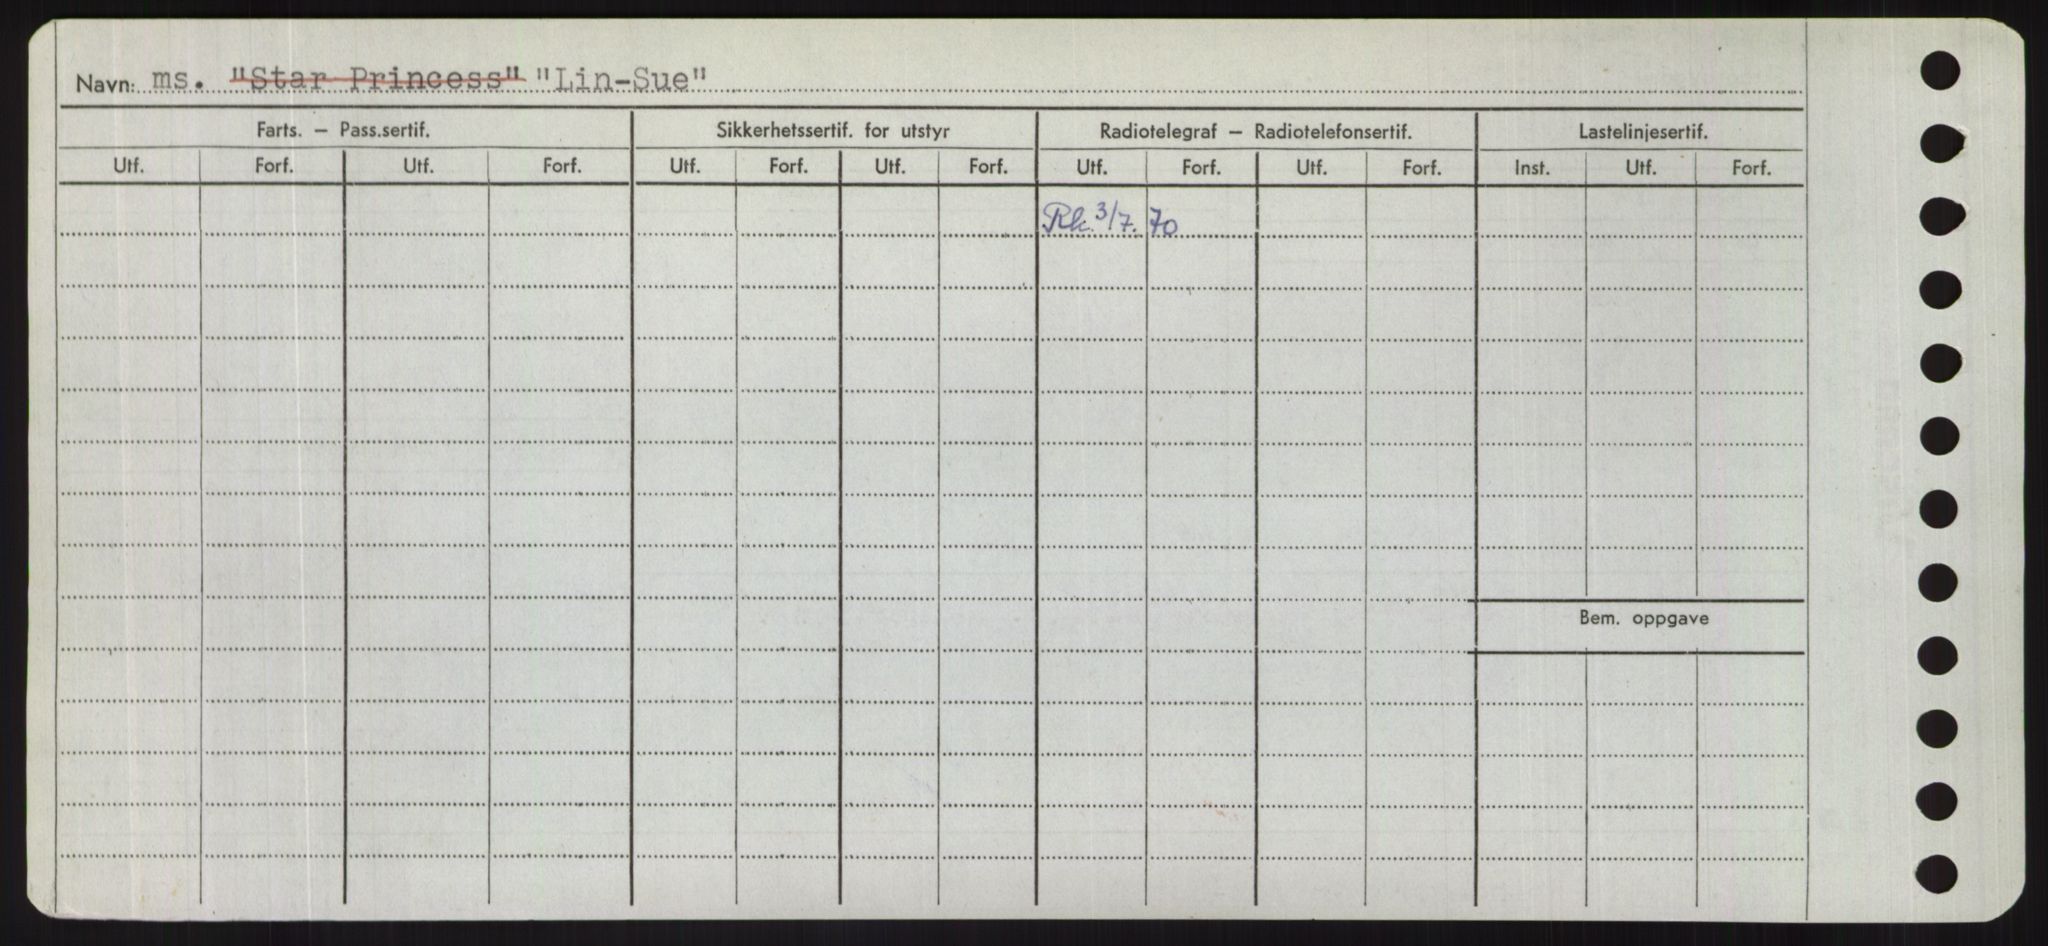 Navn: ms. "Star Princess" "Lin-Sue"
Farts. – Pass.sertif. Sikkerhetssertif. for utstyr Radiotelegraf – Radiotelefonsertif. Lastelinjesertif.
Utf. Forf. Utf. Forf. Utf. Forf. Utf. Forf. Utf. Forf. Utf. Forf. Inst. Utf. Forf.
Rk. 3/7. 70
Bem. oppgave